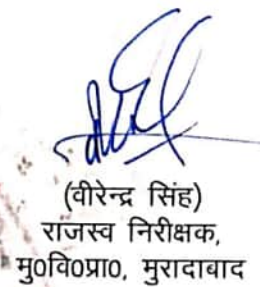 (वीरेन्द्र सिंह)
राजस्व निरीक्षक,
मु०वि०प्रा०, मुरादाबाद